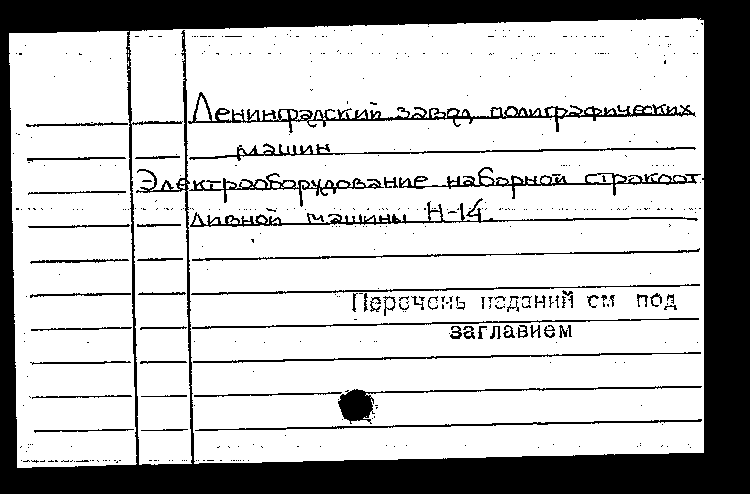 Ленинградский завод полиграфических
машин
Электрооборудование наборной строкоот-
ливной машины Н-14.
Перечень изданий см под
заглавием